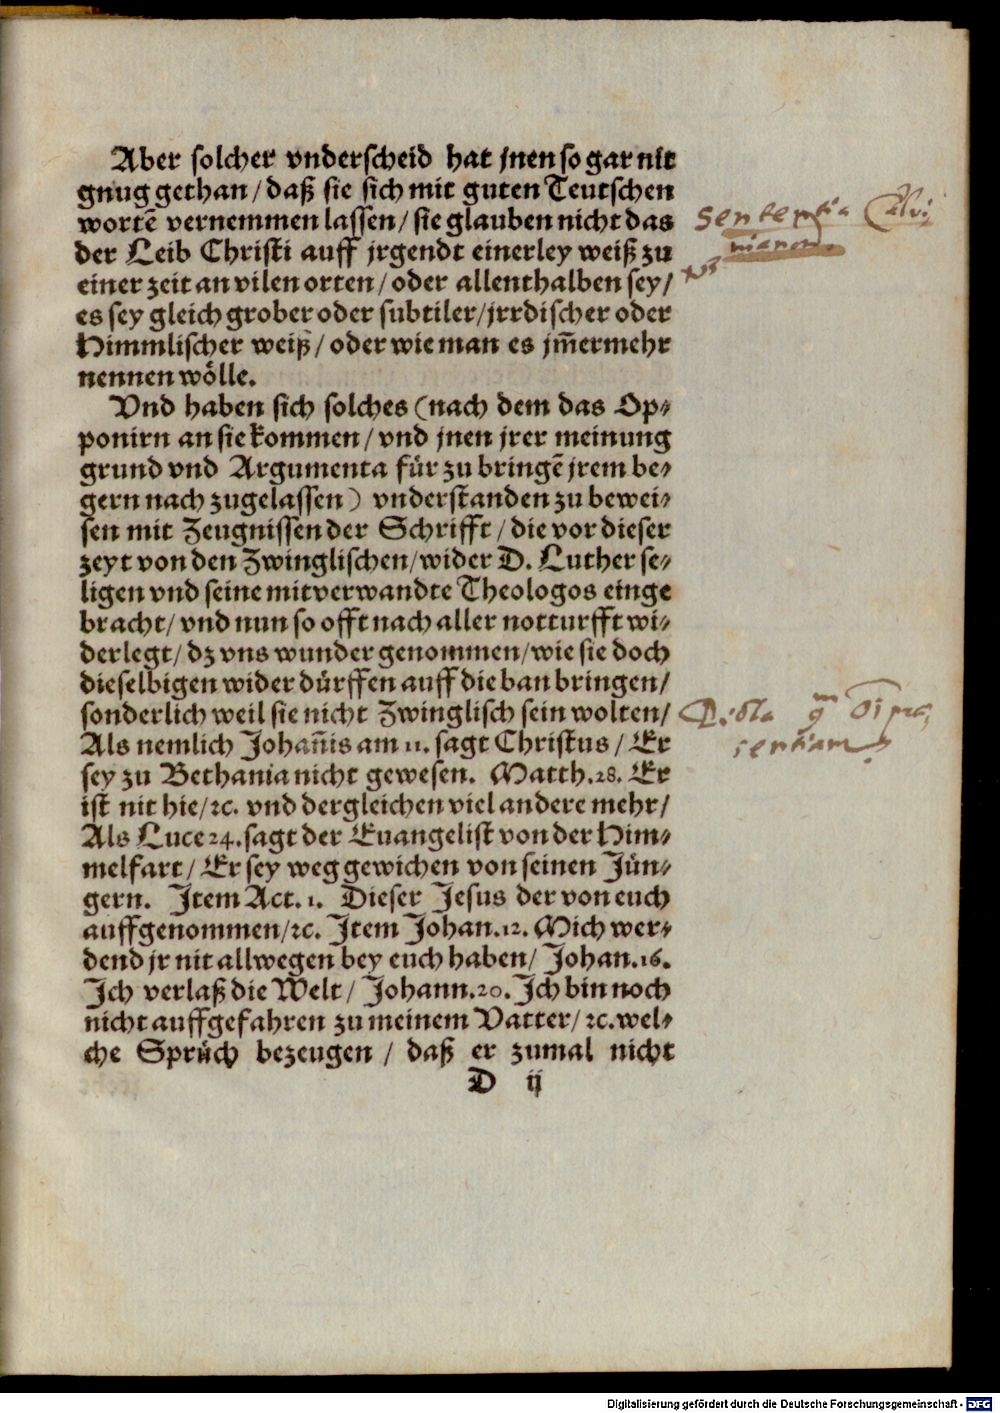 Aber solcher vnderscheid hat jnen so gar nit
gnug gethan / daß sie sich mit guten Teutschen
wortē vernemmen lassen / sie glauben nicht das
der Leib Christi auff jrgendt einerley weiß zu
einer zeit an vilen orten / oder allenthalben sey /
es sey gleich grober oder subtiler / jrrdischer oder
Himmlischer weiß / oder wie man es jm̄ermehr
nennen wölle.
Vnd haben sich solches (nach dem das Op⸗
ponirn an sie kommen / vnd jnen jrer meinung
grund vnd Argumenta für zu bringē jrem be⸗
gern nach zugelassen) vnderstanden zu bewei⸗
sen mit Zeugnissen der Schrifft / die vor dieser
zeyt von den Zwinglischen / wider D. Luther se⸗
ligen vnd seine mitverwandte Theologos einge
bracht / vnd nun so offt nach aller notturfft wi⸗
derlegt / dz vns wunder genommen / wie sie doch
dieselbigen wider dürffen auff die ban bringen /
sonderlich weil sie nicht Zwinglisch sein wolten /
Als nemlich Johan̄is am 11. sagt Christus / Er
sey zu Bethania nicht gewesen. Matth. 28. Er
ist nit hie / ꝛc. vnd dergleichen viel andere mehr /
Als Luce 24. sagt der Euangelist von der Him⸗
melfart / Er sey weg gewichen von seinen Jün⸗
gern. Item Act. 1. Dieser Jesus der von euch
auffgenommen / ꝛc. Item Johan. 12. Mich wer⸗
dend jr nit allwegen bey euch haben / Johan. 16.
Ich verlaß die Welt / Johann. 20. Ich bin noch
nicht auffgefahren zu meinem Vatter / ꝛc. wel⸗
che Sprüch bezeugen / daß er zumal nicht
D ij
sententia Calvi
nianor.
Dicta
sentiam
Digitalisierung gefördert durch die Deutsche Forschungsgemeinschaft - DFG